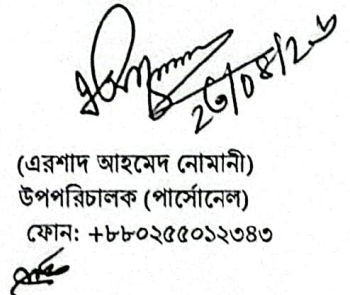 (এরশাদ আহমেদ নোমানী)
উপপরিচালক (পার্সোনেল)
ফোন: +৮৮০২৫৫০১২৩৪৩